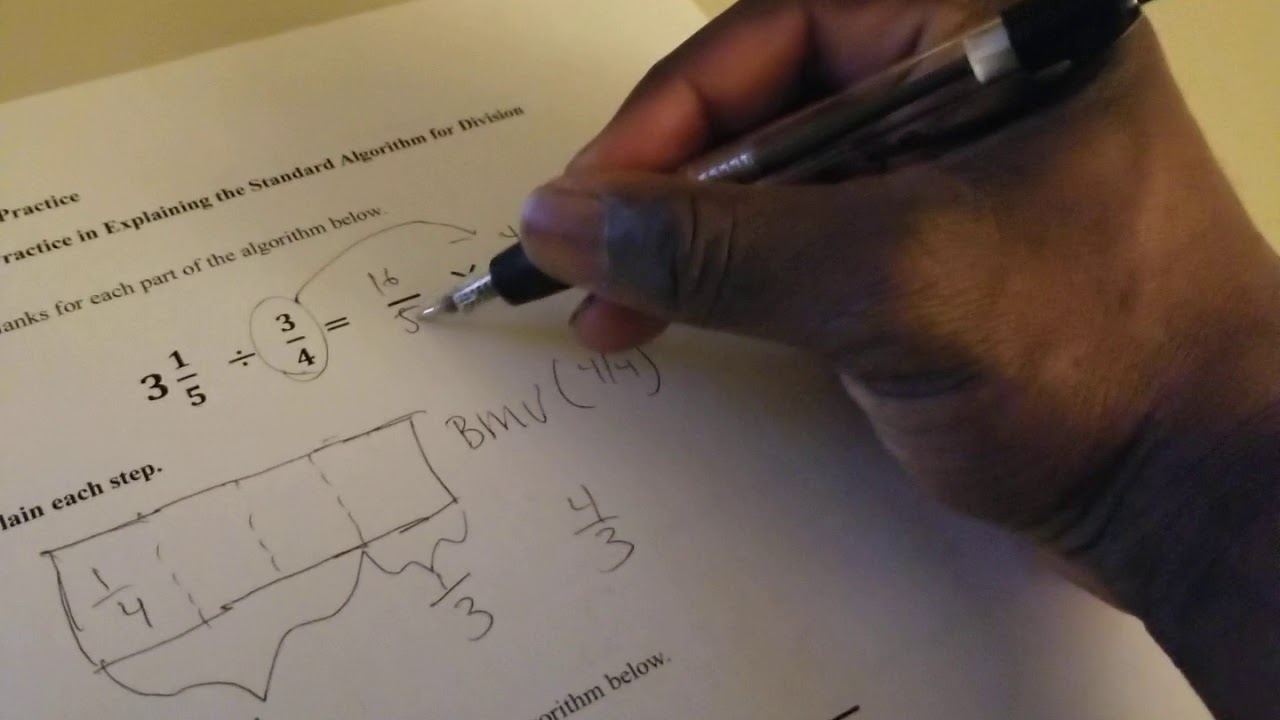 Practice
ractice in Explaining the Standard Algorithm for Division
anks for each part of the algorithm below.
3 1/5 ÷ 3/4 = 16/5
BMV (4/4)
lain each step.
1/4
1/3
4/3
orithm below.